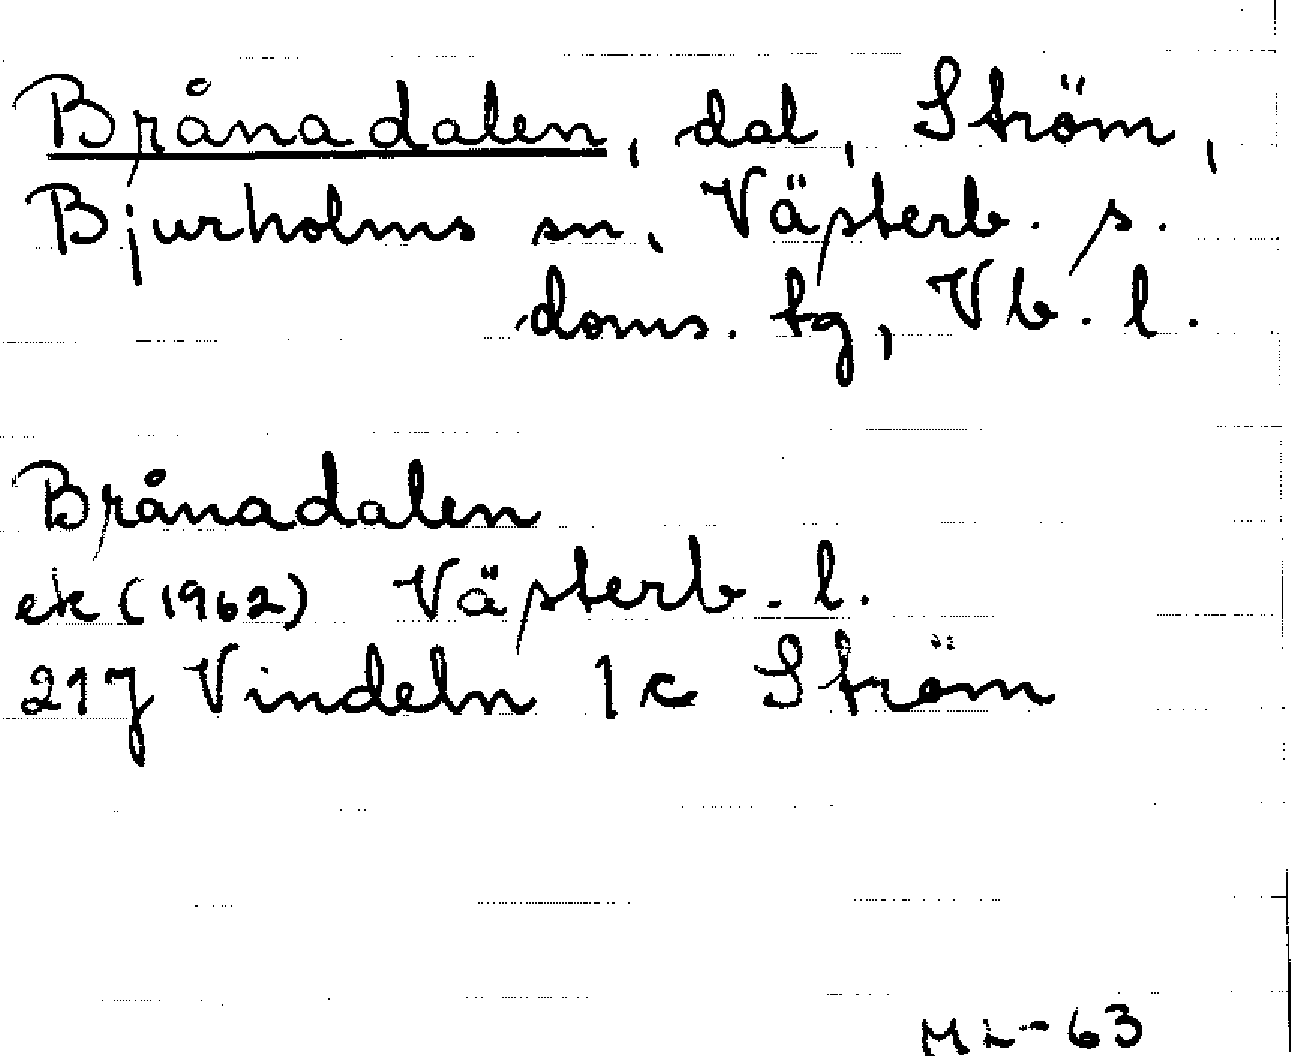 Brånadalen, dal, Ström,
Bjurholms sn, Västerb. s.
doms. tg, Vb. l.
Brånadalen
ek (1962) Västerb. l.
21J Vindeln 1c Ström
ML-63